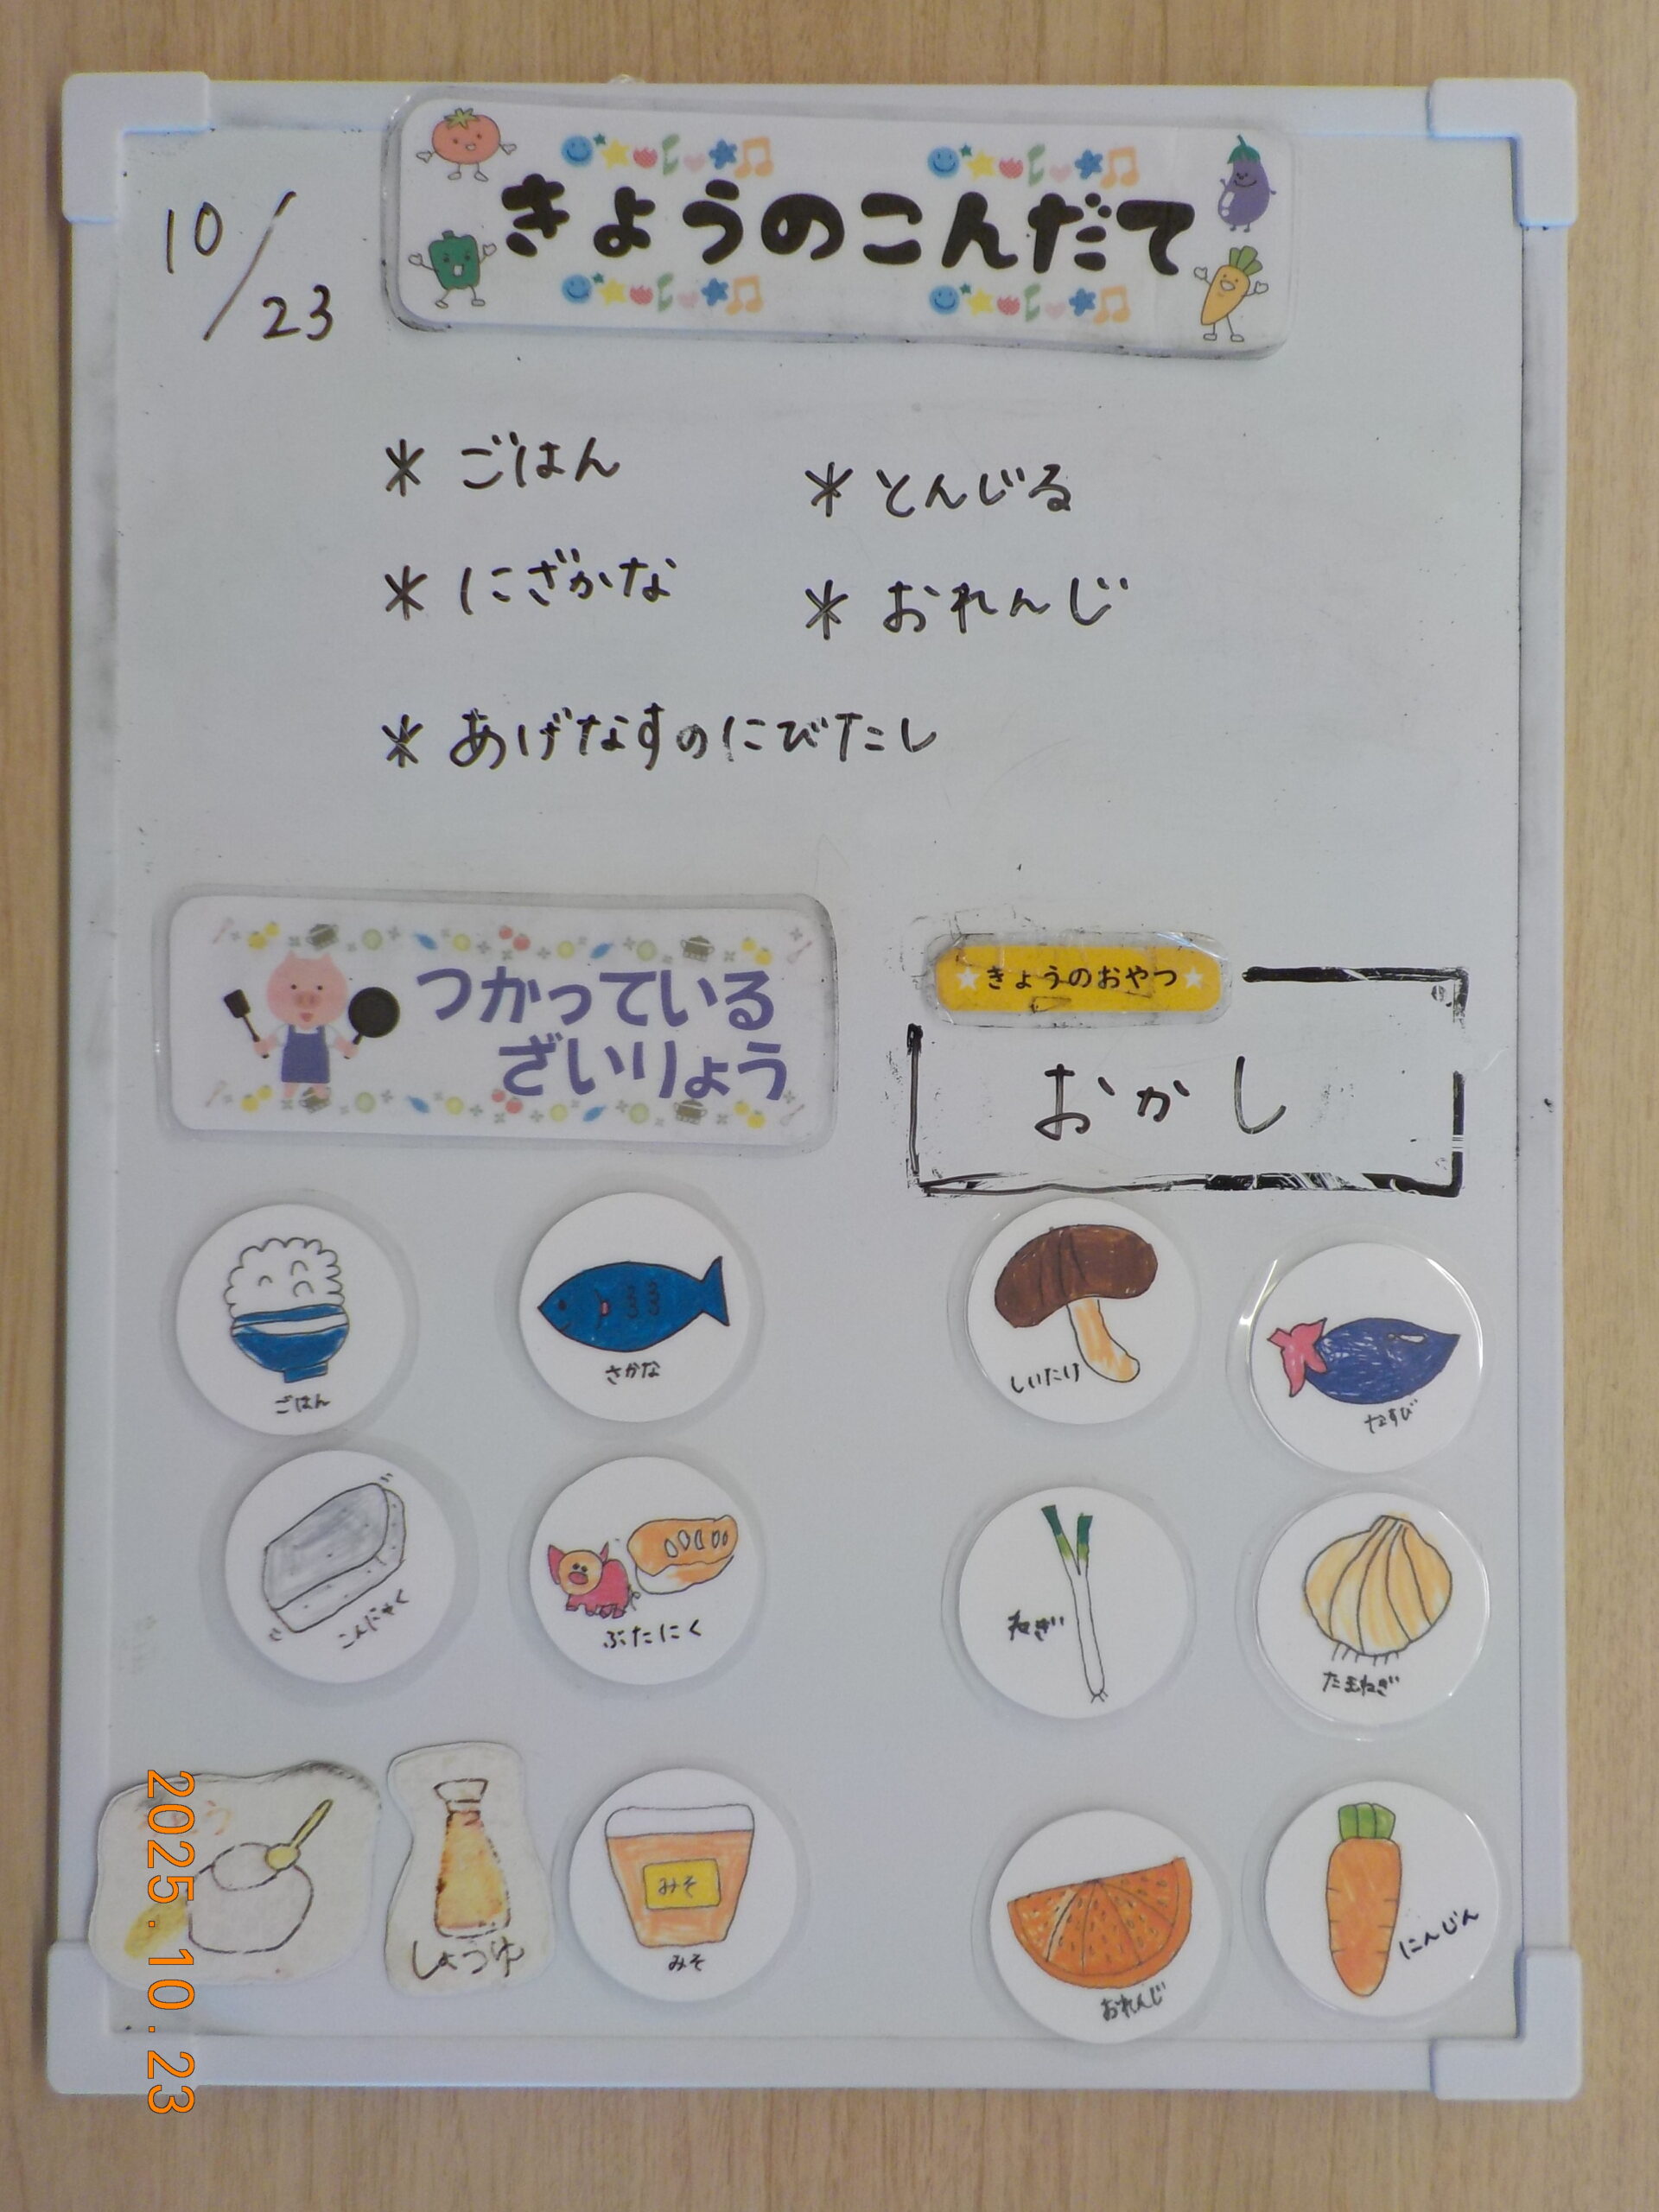 きょうのこんだて
10/23
* ごはん
* とんじる
* にざかな
* おれんじ
* あげなすのにびたし
つかっている
ざいりょう
★きょうのおやつ★
おかし
ごはん
さかな
しいたけ
なすび
こんにゃく
ぶたにく
ねぎ
たまねぎ
しょうゆ
みそ
みそ
おれんじ
にんじん
2025.10.23